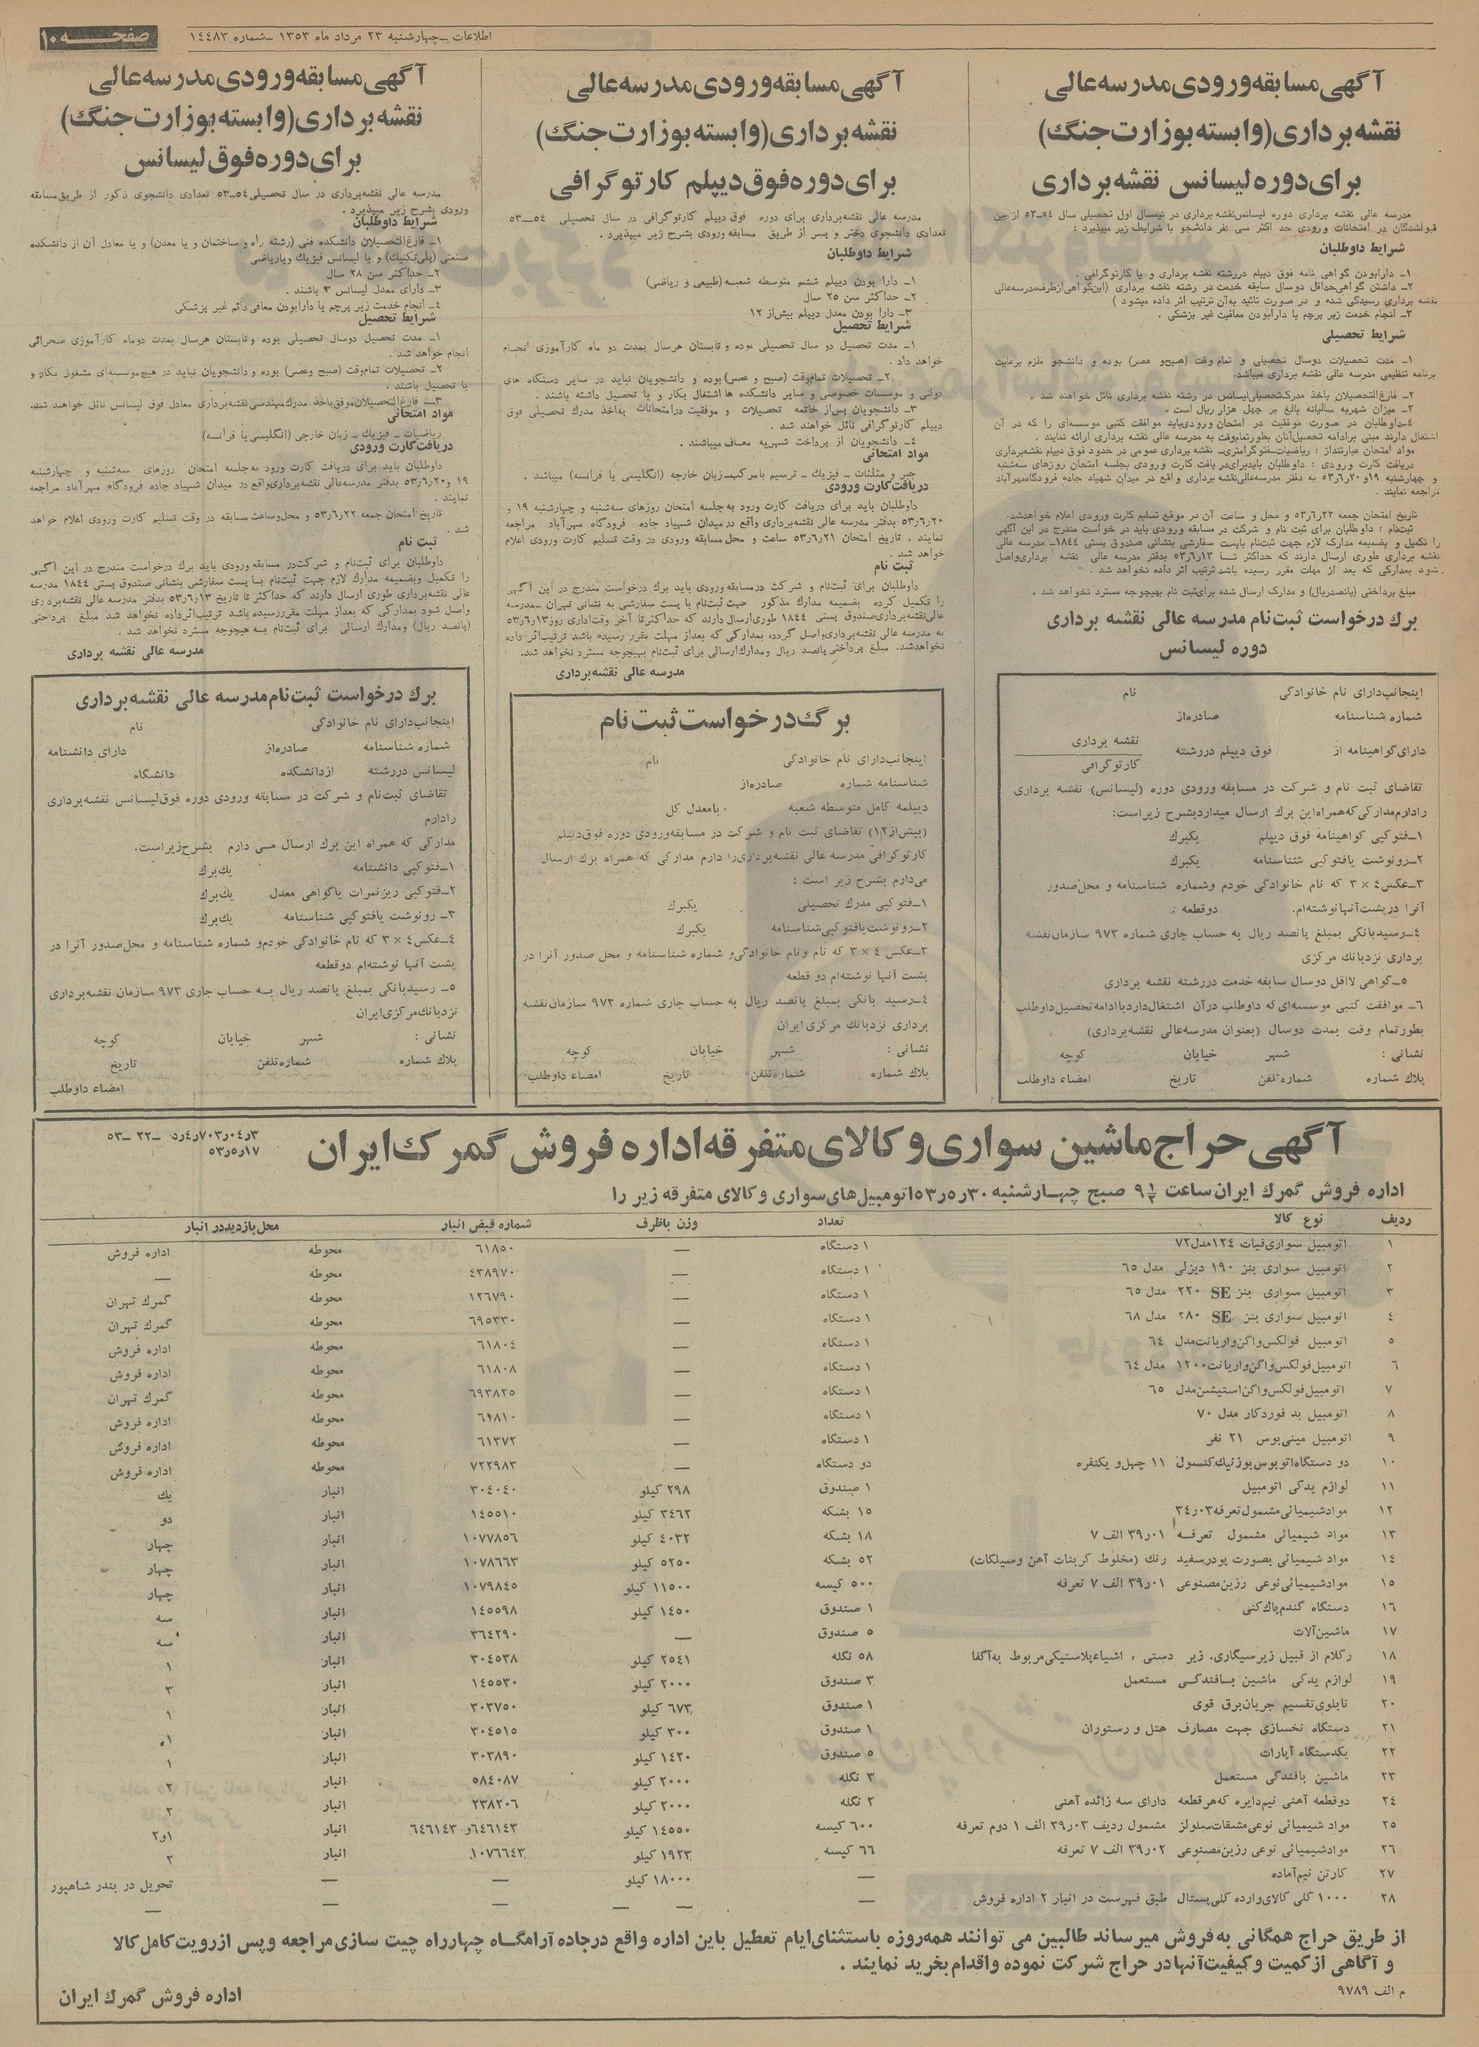 صفحه ۱۰
اطلاعات ـ چهارشنبه ۲۳ مرداد ماه ۱۳۵۳ ـ شماره ۱۴۴۸۳
آگهی مسابقه ورودی مدرسه عالی
نقشه برداری (وابسته بوزارت جنگ)
برای دوره لیسانس نقشه برداری
مدرسه عالی نقشه برداری دوره لیسانس نقشه برداری در نیمسال اول تحصیلی سال ۵۴ــ۵۳ از بین
قبولشدگان در امتحانات ورودی حد اکثر سی نفر دانشجو با شرایط زیر میپذیرد :
شرایط داوطلبان
۱ــ دارا بودن گواهی نامه فوق دیپلم دررشته نقشه برداری و یا کارتوگرافی .
۲ــ داشتن گواهی حداقل دوسال سابقه خدمت در رشته نقشه برداری (این گواهی ازطرف مدرسه عالی
نقشه برداری رسیدگی شده و در صورت تائید به آن ترتیب اثر داده میشود )
۳ــ انجام خدمت زیر پرچم یا دارابودن معافیت غیر پزشکی .
شرایط تحصیلی
۱ــ مدت تحصیلات دوسال تحصیلی و تمام وقت (صبح و عصر) بوده و دانشجو ملزم برعایت
برنامه تنظیمی مدرسه عالی نقشه برداری میباشد.
۲ــ فارغ التحصیلان باخذ مدرک تحصیلی لیسانس در رشته نقشه برداری نائل خواهند شد .
۳ــ میزان شهریه سالیانه بالغ بر چهل هزار ریال است .
۴ــ داوطلبان در صورت موفقیت در امتحان ورودی باید موافقت کتبی موسسه ای را که در آن
اشتغال دارند مبنی برادامه تحصیل آنان بطور تمام وقت به مدرسه عالی نقشه برداری ارائه نمایند .
مواد امتحان عبارتنداز : ریاضیات ـ فتوگرامتری ـ نقشه برداری عمومی در حدود فوق دیپلم نقشه برداری
دریافت کارت ورودی : داوطلبان باید برای دریافت کارت ورودی بجلسه امتحان روزهای سه شنبه
و چهارشنبه ۱۹ و ۲۰ر۶ر۵۳ به دفتر مدرسه عالی نقشه برداری واقع در میدان شهیاد جاده فرودگاه مهرآباد
مراجعه نمایند .
تاریخ امتحان جمعه ۲۲ر۶ر۵۳ و محل و ساعت آن در موقع تسلیم کارت ورودی اعلام خواهد شد .
ثبت نام : داوطلبان برای ثبت نام و شرکت در مسابقه ورودی باید در خواست مندرج در این آگهی
را تکمیل و بضمیمه مدارک لازم جهت ثبت نام با پست سفارشی بنشانی صندوق پستی ۱۸۴۴ــ مدرسه عالی
نقشه برداری طوری ارسال دارند که حداکثر تا ۱۳ر۶ر۵۳ بدفتر مدرسه عالی نقشه برداری واصل
شود بمدارکی که بعد از مهلت مقرر رسیده باشد ترتیب اثر داده نخواهد شد .
مبلغ پرداختی (پانصدریال) و مدارک ارسال شده برای ثبت نام بهیچوجه مسترد نخواهد شد .
برک درخواست ثبت نام مدرسه عالی نقشه برداری
دوره لیسانس
اینجانب دارای نام خانوادگی نام
شماره شناسنامه صادره از
دارای گواهینامه از فوق دیپلم دررشته نقشه برداری
کارتوگرافی
تقاضای ثبت نام و شرکت در مسابقه ورودی دوره (لیسانس) نقشه برداری
رادارم مدارکی که همراه این برک ارسال میدارد بشرح زیر است:
۱ــ فتوکپی گواهینامه فوق دیپلم یکبرک
۲ــ رونوشت یا فتوکپی شناسنامه یکبرک
۳ــ عکس ۴ × ۳ که نام خانوادگی خودم وشماره شناسنامه و محل صدور
آنرا در پشت آنها نوشته ام. دو قطعه :
۴ــ رسید بانکی بمبلغ پانصد ریال به حساب جاری شماره ۹۷۳ سازمان نقشه
برداری نزدبانک مرکزی
۵ــ گواهی لااقل دوسال سابقه خدمت دررشته نقشه برداری
۶ــ موافقت کتبی موسسه ای که داوطلب درآن اشتغال دارد با ادامه تحصیل داوطلب
بطور تمام وقت بمدت دوسال (بعنوان مدرسه عالی نقشه برداری)
نشانی : شهر خیابان کوچه
پلاک شماره شماره تلفن تاریخ امضاء داوطلب
آگهی مسابقه ورودی مدرسه عالی
نقشه برداری (وابسته بوزارت جنگ)
برای دوره فوق دیپلم کارتوگرافی
مدرسه عالی نقشه برداری برای دوره فوق دیپلم کارتوگرافی در سال تحصیلی ۵۴ــ۵۳
تعدادی دانشجوی دختر و پسر از طریق مسابقه ورودی بشرح زیر میپذیرد .
شرایط داوطلبان
۱ــ دارا بودن دیپلم ششم متوسطه شعبه (طبیعی و ریاضی)
۲ــ حداکثر سن ۲۵ سال
۳ــ دارا بودن معدل دیپلم بیش از ۱۲
شرایط تحصیل
۱ــ مدت تحصیل دو سال تحصیلی بوده و تابستان هرسال بمدت دو ماه کارآموزی انجام
خواهد داد .
۲ــ تحصیلات تمام وقت (صبح و عصر) بوده و دانشجویان نباید در سایر دستگاه های
دولتی و موسسات خصوصی و سایر دانشکده ها اشتغال بکار و یا تحصیل داشته باشند .
۳ــ دانشجویان پس از خاتمه تحصیلات و موفقیت در امتحانات به اخذ مدرک تحصیلی فوق
دیپلم کارتوگرافی نائل خواهند شد .
۴ــ دانشجویان از پرداخت شهریه معاف میباشند .
مواد امتحانی
جبر و مثلثات ـ فیزیک ـ ترسیم با مرکب ـ زبان خارجه (انگلیسی یا فرانسه) میباشد .
دریافت کارت ورودی
داوطلبان باید برای دریافت کارت ورود به جلسه امتحان روزهای سه شنبه و چهارشنبه ۱۹ و
۲۰ر۶ر۵۳ بدفتر مدرسه عالی نقشه برداری واقع در میدان شهیاد جاده فرودگاه مهرآباد مراجعه
نمایند . تاریخ امتحان ۲۱ر۶ر۵۳ ساعت و محل مسابقه در وقت تسلیم کارت ورودی اعلام
خواهد شد .
ثبت نام
داوطلبان برای ثبت نام و شرکت درمسابقه ورودی باید برک درخواست مندرج در این آگهی
را تکمیل کرده بضمیمه مدارک مذکور جهت ثبت نام با پست سفارشی به نشانی تهران ـ مدرسه
عالی نقشه برداری صندوق پستی ۱۸۴۴ طوری ارسال دارند که حداکثر تا آخر وقت اداری روز ۱۳ر۶ر۵۳
به مدرسه عالی نقشه برداری واصل گردد بمدارکی که بعد از مهلت مقرر رسیده باشد ترتیب اثر داده
نخواهد شد. مبلغ پرداختی پانصد ریال ومدارک ارسالی برای ثبت نام بهیچوجه مسترد نخواهد شد.
مدرسه عالی نقشه برداری
برگ درخواست ثبت نام
اینجانب دارای نام خانوادگی نام
شناسنامه شماره صادره از
دیپلمه کامل متوسطه شعبه با معدل کل
(بیش از ۱۲) تقاضای ثبت نام و شرکت در مسابقه ورودی دوره فوق دیپلم
کارتوگرافی مدرسه عالی نقشه برداری را دارم مدارکی که همراه برک ارسال
می دارم بشرح زیر است :
۱ــ فتوکپی مدرک تحصیلی یکبرک
۲ــ رونوشت یا فتوکپی شناسنامه یکبرک
۳ــ عکس ۴ × ۳ که نام و نام خانوادگی و شماره شناسنامه و محل صدور آنرا در
پشت آنها نوشته ام دو قطعه
۴ــ رسید بانکی بمبلغ پانصد ریال به حساب جاری شماره ۹۷۳ سازمان نقشه
برداری نزدبانک مرکزی ایران
نشانی : شهر خیابان کوچه
پلاک شماره شماره تلفن تاریخ امضاء داوطلب
آگهی مسابقه ورودی مدرسه عالی
نقشه برداری (وابسته بوزارت جنگ)
برای دوره فوق لیسانس
مدرسه عالی نقشه برداری در سال تحصیلی ۵۴ــ۵۳ تعدادی دانشجوی ذکور از طریق مسابقه
ورودی بشرح زیر میپذیرد .
شرایط داوطلبان
۱ــ فارغ التحصیلان دانشکده فنی (رشته راه و ساختمان و یا معدن) و یا معادل آن از دانشکده
صنعتی (پلی تکنیک) و یا لیسانس فیزیک و یا ریاضی
۲ــ حداکثر سن ۲۸ سال
۳ــ دارای معدل لیسانس ۲ باشند .
۴ــ انجام خدمت زیر پرچم یا دارابودن معافی دائم غیر پزشکی
شرایط تحصیل
۱ــ مدت تحصیل دوسال تحصیلی بوده و تابستان هرسال بمدت دوماه کارآموزی صحرائی
انجام خواهد شد .
۲ــ تحصیلات تمام وقت (صبح وعصر) بوده و دانشجویان نباید در هیچ موسسه ای مشغول بکار و
یا تحصیل باشند .
۳ــ فارغ التحصیلان موفق باخذ مدرک مهندسی نقشه برداری معادل فوق لیسانس نائل خواهند شد.
مواد امتحانی
ریاضیات ـ فیزیک ـ زبان خارجی (انگلیسی یا فرانسه)
دریافت کارت ورودی
داوطلبان باید برای دریافت کارت ورود به جلسه امتحان روزهای سه شنبه و چهارشنبه
۱۹ و ۲۰ر۶ر۵۳ بدفتر مدرسه عالی نقشه برداری واقع در میدان شهیاد جاده فرودگاه مهرآباد مراجعه
نمایند .
تاریخ امتحان جمعه ۲۲ر۶ر۵۳ و محل وساعت مسابقه در وقت تسلیم کارت ورودی اعلام خواهد
شد .
ثبت نام
داوطلبان برای ثبت نام و شرکت در مسابقه ورودی باید برک درخواست مندرج در این آگهی
تکمیل وبضمیمه مدارک لازم جهت ثبت نام با پست سفارشی بنشانی صندوق پستی ۱۸۴۴ مدرسه
عالی نقشه برداری طوری ارسال دارند که حداکثر تا تاریخ ۱۳ر۶ر۵۳ بدفتر مدرسه عالی نقشه برداری
واصل شود بمدارکی که بعد از مهلت مقرر رسیده باشد ترتیب اثر داده نخواهد شد مبلغ پرداختی
(پانصد ریال) ومدارک ارسالی برای ثبت نام به هیچوجه مسترد نخواهد شد .
مدرسه عالی نقشه برداری
برک درخواست ثبت نام مدرسه عالی نقشه برداری
اینجانب دارای نام خانوادگی نام
شماره شناسنامه صادره از دارای دانشنامه
لیسانس دررشته ازدانشکده دانشگاه
تقاضای ثبت نام و شرکت در مسابقه ورودی دوره فوق لیسانس نقشه برداری
رادارم
مدارکی که همراه این برک ارسال می دارم بشرح زیر است.
۱ــ فتوکپی دانشنامه یک برک
۲ــ فتوکپی ریز نمرات یا گواهی معدل یک برک
۳ــ رونوشت یا فتوکپی شناسنامه یک برک
۴ــ عکس ۴ × ۳ که نام خانوادگی خودم و شماره شناسنامه و محل صدور آنرا در
پشت آنها نوشته ام دو قطعه
۵ــ رسید بانکی بمبلغ پانصد ریال به حساب جاری ۹۷۳ سازمان نقشه برداری
نزدبانک مرکزی ایران
نشانی : شهر خیابان کوچه
پلاک شماره شماره تلفن تاریخ
امضاء داوطلب
آگهی حراج ماشین سواری و کالای متفرقه اداره فروش گمرک ایران
۱۷ر۵ر۵۳
اداره فروش گمرک ایران ساعت ۹½ صبح چهارشنبه ۳۰ر۵ر۵۳ اتومبیل های سواری و کالای متفرقه زیر را
ردیف نوع کالا تعداد وزن باظرف شماره قبض انبار محل بازدید در انبار
۱ اتومبیل سواری فیات ۱۲۴ مدل ۷۲ ۱ دستگاه — ۶۱۸۵۰ محوطه اداره فروش
۲ اتومبیل سواری بنز ۱۹۰ دیزلی مدل ۶۵ ۱ دستگاه — ۴۳۸۹۷۰ محوطه —
۳ اتومبیل سواری بنز SE ۲۲۰ مدل ۶۵ ۱ دستگاه — ۱۲۶۷۹۰ محوطه گمرک تهران
۴ اتومبیل سواری بنز SE ۲۸۰ مدل ۶۸ ۱ دستگاه — ۶۹۵۳۳۰ محوطه گمرک تهران
۵ اتومبیل فولکس واگن واریانت مدل ۶۴ ۱ دستگاه — ۶۱۸۰۴ محوطه اداره فروش
۶ اتومبیل فولکس واگن واریانت ۱۲۰۰ مدل ۶۴ ۱ دستگاه — ۶۱۸۰۸ محوطه اداره فروش
۷ اتومبیل فولکس واگن استیشن مدل ۶۵ ۱ دستگاه — ۶۹۳۸۲۵ محوطه گمرک تهران
۸ اتومبیل بد فورد کار مدل ۷۰ ۱ دستگاه — ۶۱۸۱۰ محوطه اداره فروش
۹ اتومبیل مینی بوس ۲۱ نفر ۱ دستگاه — ۶۱۳۷۲ محوطه اداره فروش
۱۰ دو دستگاه اتوبوس بوزنیک کنسول ۱۱ چهل و یکنفره دو دستگاه — ۷۲۲۹۸۳ محوطه اداره فروش
۱۱ لوازم یدکی اتومبیل ۱ صندوق ۲۹۸ کیلو ۳۰۴۰۴۰ انبار یک
۱۲ موادشیمیائی مشمول تعرفه ۰۳ر۳۴ ۱۵ بشکه ۳۴۶۲ کیلو ۱۴۵۵۱۰ انبار دو
۱۳ مواد شیمیائی مشمول تعرفه ۰۱ر۳۹ الف ۷ ۱۸ بشکه ۴۰۳۲ کیلو ۱۰۷۷۸۵۶ انبار چهار
۱۴ مواد شیمیائی بصورت پودرسفید رنک (مخلوط کربنات آهن وسیلکات) ۵۲ بشکه ۵۲۵۰ کیلو ۱۰۷۸۶۶۳ انبار چهار
۱۵ موادشیمیائی نوعی رزین مصنوعی ۰۱ر۳۹ الف ۷ تعرفه ۵۰۰ کیسه ۱۱۵۰۰ کیلو ۱۰۷۹۸۴۵ انبار چهار
۱۶ دستگاه گندم پاک کنی ۱ صندوق ۱۴۵۰ کیلو ۱۴۵۵۹۸ انبار سه
۱۷ ماشین آلات ۵ صندوق — ۳۶۴۲۹۰ انبار سه
۱۸ رکلام از قبیل زیرسیگاری. زیر دستی ، اشیاء پلاستیکی مربوط به آگفا ۵۸ نگله ۲۵۴۱ کیلو ۳۰۴۵۳۸ انبار ۱
۱۹ لوازم یدکی ماشین بافندگی مستعمل ۳ صندوق ۲۰۰۰ کیلو ۱۴۵۵۳۰ انبار ۳
۲۰ تابلوی تقسیم جریان برق قوی ۱ صندوق ۶۷۳ کیلو ۳۰۳۷۵۰ انبار ۱
۲۱ دستگاه نخسازی جهت مصارف هتل و رستوران ۱ صندوق ۳۰۰ کیلو ۳۰۴۵۱۵ انبار ۱
۲۲ یکدستگاه آپارات ۵ صندوق ۱۴۲۰ کیلو ۳۰۳۸۹۰ انبار ۱
۲۳ ماشین بافندگی مستعمل ۳ نگله ۲۰۰۰ کیلو ۵۸۴۰۸۷ انبار ۲
۲۴ دوقطعه آهنی نیم دایره که هرقطعه دارای سه زائده آهنی ۲ نگله ۲۰۰۰ کیلو ۲۳۸۲۰۶ انبار ۲
۲۵ مواد شیمیائی نوعی مشتقات سلولز مشمول ردیف ۰۳ر۳۹ الف ۱ دوم تعرفه ۶۰۰ کیسه ۱۴۵۵۰ کیلو ۶۴۶۱۴۳ و ۶۴۶۱۴۳ انبار ۱و۲
۲۶ موادشیمیائی نوعی رزین مصنوعی ۰۲ر۳۹ الف ۷ تعرفه ۶۶ کیسه ۱۹۲۳ کیلو ۱۰۷۶۶۴۳ انبار ۲
۲۷ کارتن نیم آماده — ۱۸۰۰۰ کیلو — — تحویل در بندر شاهپور
۲۸ ۱۰۰۰ کلی کالای وارده کلی پستال طبق فهرست در انبار ۲ اداره فروش — — — — —
از طریق حراج همگانی به فروش میرساند طالبین می توانند همه روزه باستثنای ایام تعطیل باین اداره واقع درجاده آرامگاه چهارراه چیت سازی مراجعه وپس ازرویت کامل کالا
و آگاهی از کمیت و کیفیت آنها در حراج شرکت نموده واقدام بخرید نمایند .
م الف ۹۷۸۹
اداره فروش گمرک ایران